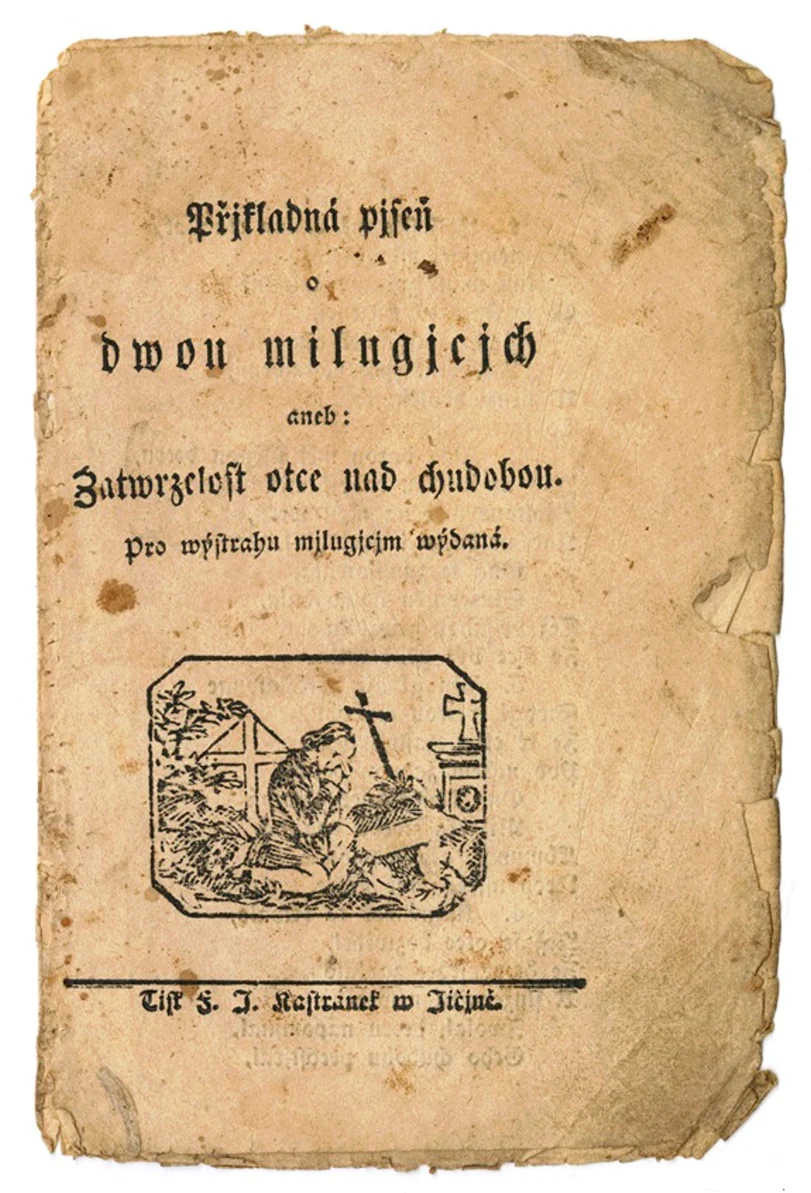 Přjkladná pjseň
o
dwou milugjcjch
aneb:
Zatwrzelost otce nad chudobou.
Pro wýstrahu mjlugjcjm wýdaná.
Tisk F. J. Kastránek w Jičjně.